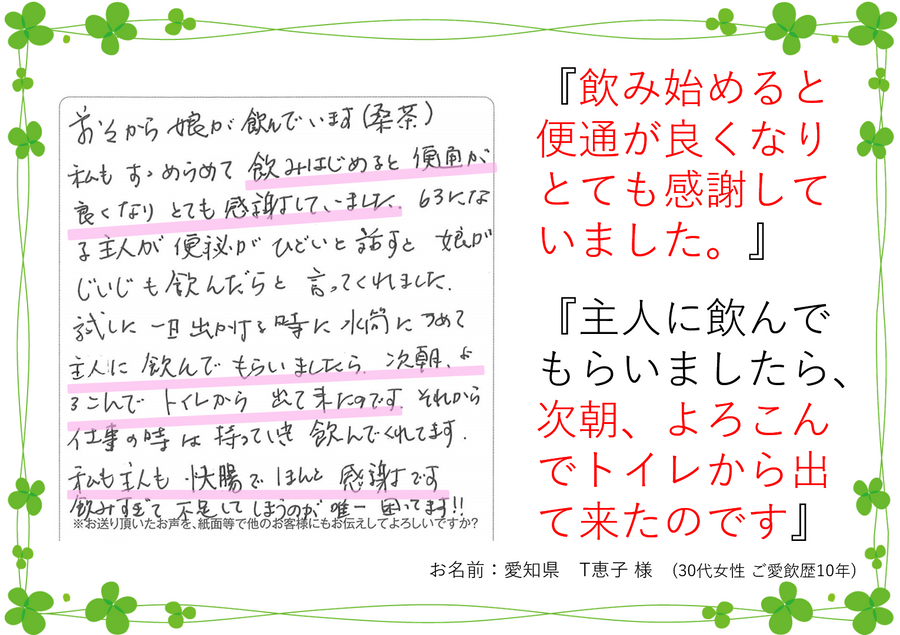 前々から娘が飲んでいます(桑茶)
私もすゝめられて飲みはじめると便通が
良くなりとても感謝していました。63にな
る主人が便秘がひどいと話すと 娘が
じいじも飲んだらと言ってくれました.
試しに一旦出かける時に水筒につめて
主人に飲んでもらいましたら、次朝、よ
ろこんでトイレから出て来たのです。それから
仕事の時は持っていき飲んでくれてます.
私も主人も快腸でほんと感謝です
飲みすぎて不足してしまうのが唯一困ってます!!
※お送り頂いたお声を、紙面等で他のお客様にもお伝えしてよろしいですか?
『飲み始めると
便通が良くなり
とても感謝して
いました。』
『主人に飲んで
もらいましたら、
次朝、よろこん
でトイレから出
て来たのです』
お名前：愛知県　T恵子 様　(30代女性 ご愛飲歴10年)